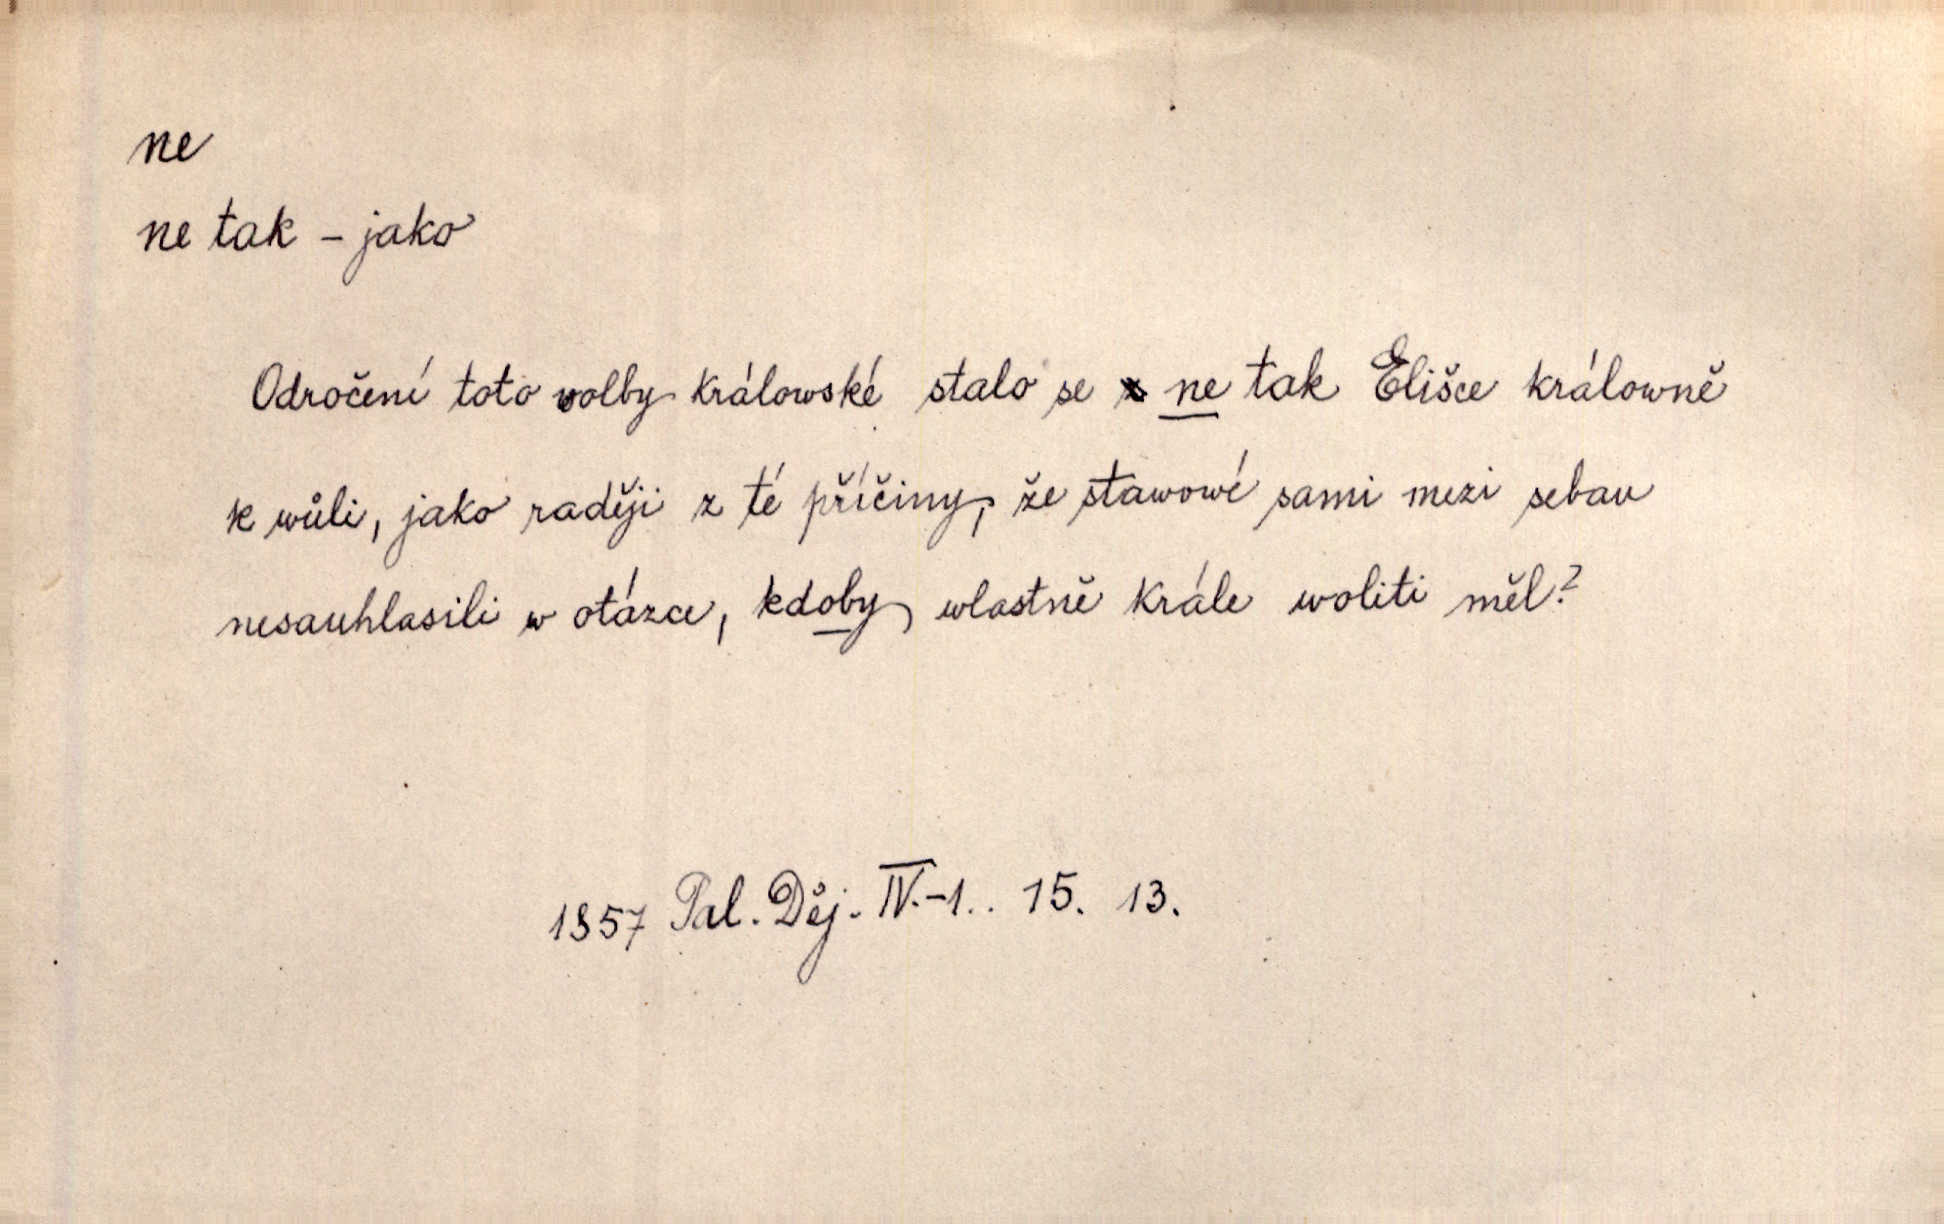 ne
ne tak – jako
Odročení toto wolby králowské stalo se ne tak Elišce králowně
k wůli, jako raději z té příčiny, že stawowé sami mezi sebau
nesauhlasili w otázce, kdoby wlastně krále woliti měl?
1857 Pal. Děj. IV.-1.. 15. 13.